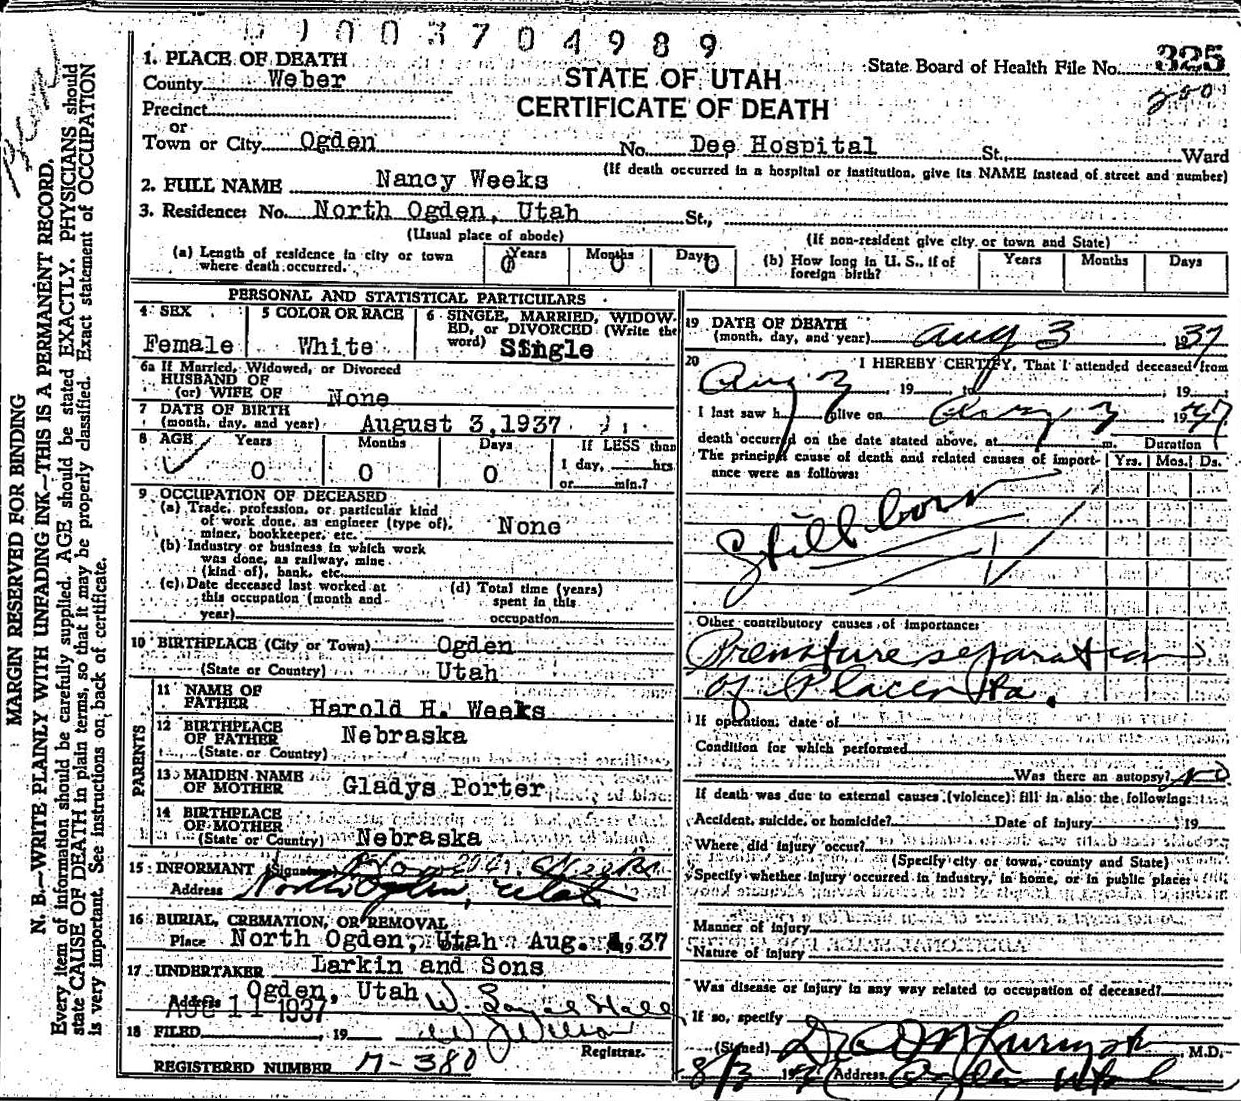 003704989
1. PLACE OF DEATH
County Weber
STATE OF UTAH
CERTIFICATE OF DEATH
State Board of Health File No. 325
200
Precinct
or
Town or City Ogden No. Dee Hospital St., Ward
(If death occurred in a hospital or institution, give its NAME instead of street and number)
2. FULL NAME Nancy Weeks
3. Residence: No. North Ogden, Utah St.,
(Usual place of abode) (If non-resident give city or town and State)
(a) Length of residence in city or town where death occurred. 0 Years 0 Months 0 Days
(b) How long in U. S., if of foreign birth? Years Months Days
PERSONAL AND STATISTICAL PARTICULARS
4 SEX Female
5 COLOR OR RACE White
6 SINGLE, MARRIED, WIDOWED, or DIVORCED (Write the word) Single
6a If Married, Widowed, or Divorced
HUSBAND OF
(or) WIFE OF None
7 DATE OF BIRTH
(month, day, and year) August 3, 1937
8 AGE Years 0 Months 0 Days 0 If LESS than 1 day, hrs. or min.?
9 OCCUPATION OF DECEASED
(a) Trade, profession, or particular kind
of work done, as engineer (type of),
miner, bookkeeper, etc. None
(b) Industry or business in which work
was done, as railway, mine
(kind of), bank, etc.
(c) Date deceased last worked at
this occupation (month and
year)
(d) Total time (years)
spent in this
occupation
10 BIRTHPLACE (City or Town) Ogden
(State or Country) Utah
PARENTS
11 NAME OF FATHER Harold H. Weeks
12 BIRTHPLACE OF FATHER Nebraska
(State or Country)
13 MAIDEN NAME OF MOTHER Gladys Porter
14 BIRTHPLACE OF MOTHER
(State or Country) Nebraska
15 INFORMANT (Signature)
Address North Ogden, Utah
16 BURIAL, CREMATION, OR REMOVAL
Place North Ogden, Utah Date Aug. 4 1937
17 UNDERTAKER Larkin and Sons
Address Ogden, Utah
AUG 11 1937
18 FILED , 19
Registrar.
REGISTERED NUMBER M-380
19 DATE OF DEATH
(month, day, and year) Aug 3 1937
20 I HEREBY CERTIFY, That I attended deceased from
Aug 3 19 to , 19
I last saw h alive on Aug 3 1937
death occurred on the date stated above, at m. Duration
The principal cause of death and related causes of importance were as follows: Yrs. Mos. Ds.
Stillborn
Other contributory causes of importance:
Premature separation
of Placenta.
If operation, date of
Condition for which performed
Was there an autopsy? No
If death was due to external causes (violence) fill in also the following:
Accident, suicide, or homicide? Date of injury , 19
Where did injury occur?
(Specify city or town, county and State)
Specify whether injury occurred in industry, in home, or in public place:
Manner of injury
Nature of injury
Was disease or injury in any way related to occupation of deceased?
If so, specify
(Signed) M.D.
8/3 1937 Address Ogden Utah
MARGIN RESERVED FOR BINDING
N. B.—WRITE PLAINLY WITH UNFADING INK—THIS IS A PERMANENT RECORD.
Every item of information should be carefully supplied. AGE should be stated EXACTLY. PHYSICIANS should
state CAUSE OF DEATH in plain terms, so that it may be properly classified. Exact statement of OCCUPATION
is very important. See instructions on back of certificate.